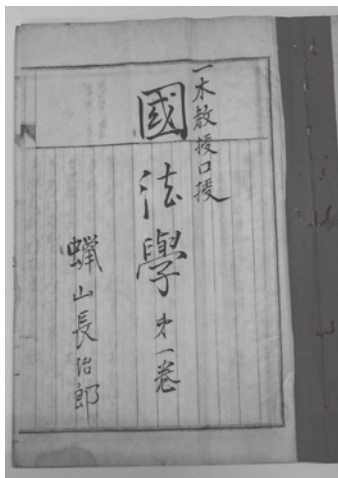 一木教授口授
國法學 㐧一卷
蠟山長治郎